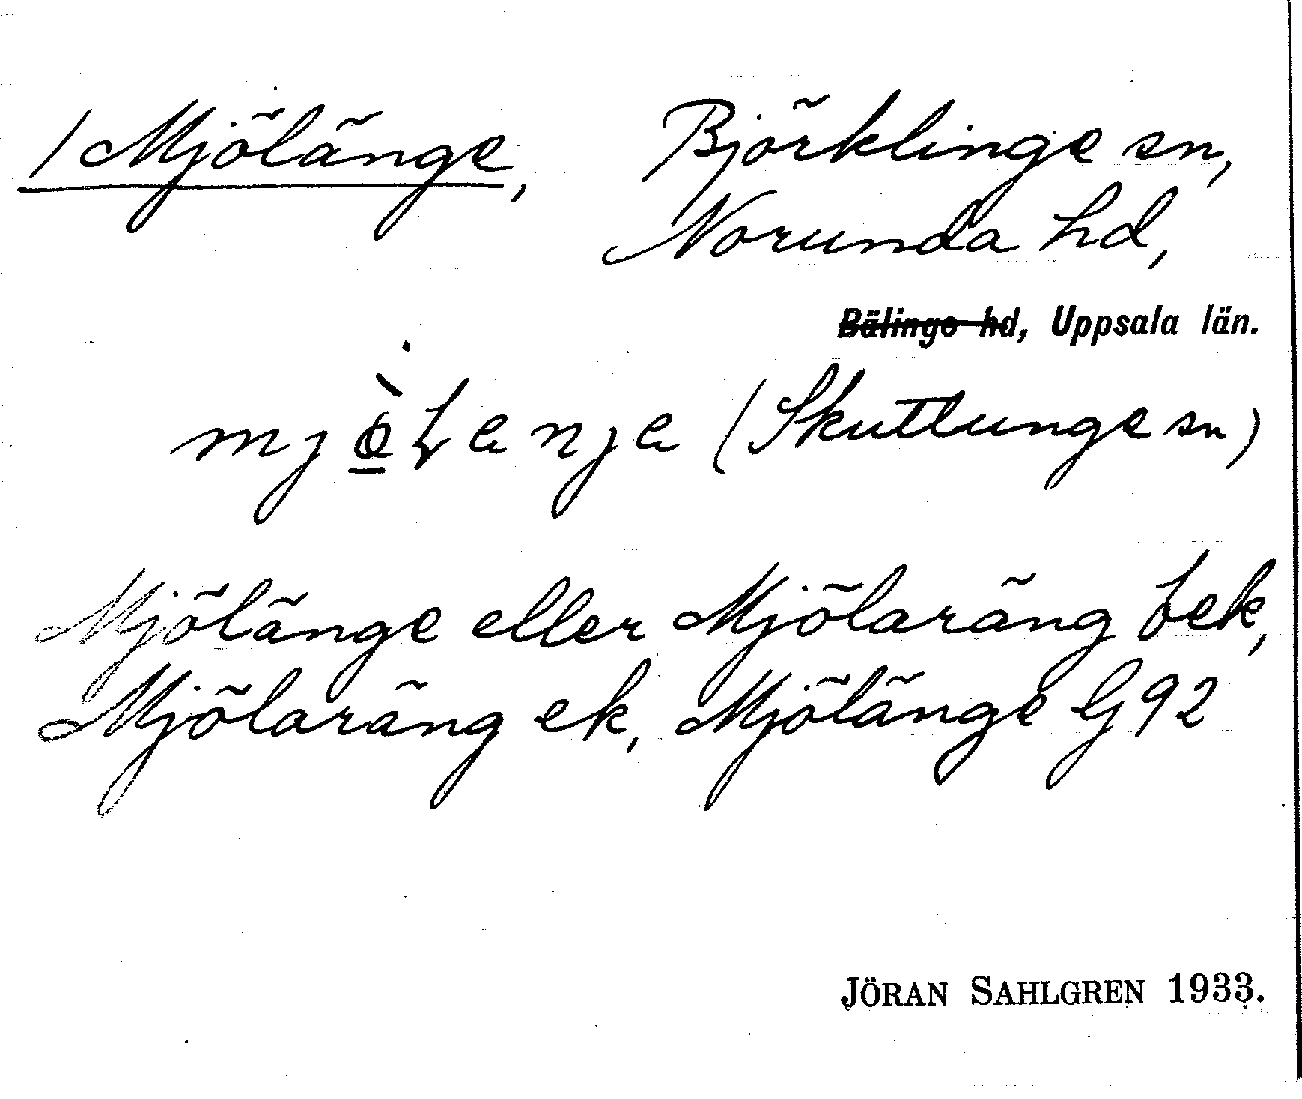 1 Mjölänge, Björklinge sn,
Norunda hd,
Bälinge hd, Uppsala län.
(Skuttunge sn)
Mjölänge eller Mjölaräng bek,
Mjölaräng ek, Mjölänge G92
JÖRAN SAHLGREN 1933.